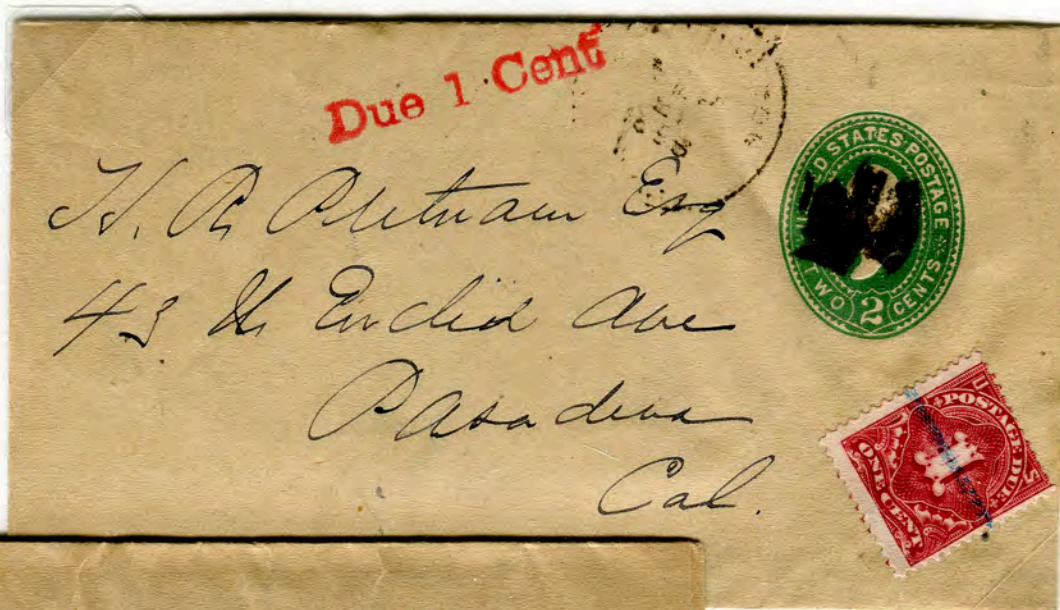 Due 1 Cent
H. R. Putnam Esq
43 N. Euclid Ave
Pasadena
Cal.
D STATES POSTAGE
TWO 2 CENTS
POSTAGE DUE
U S
1
ONE CENT